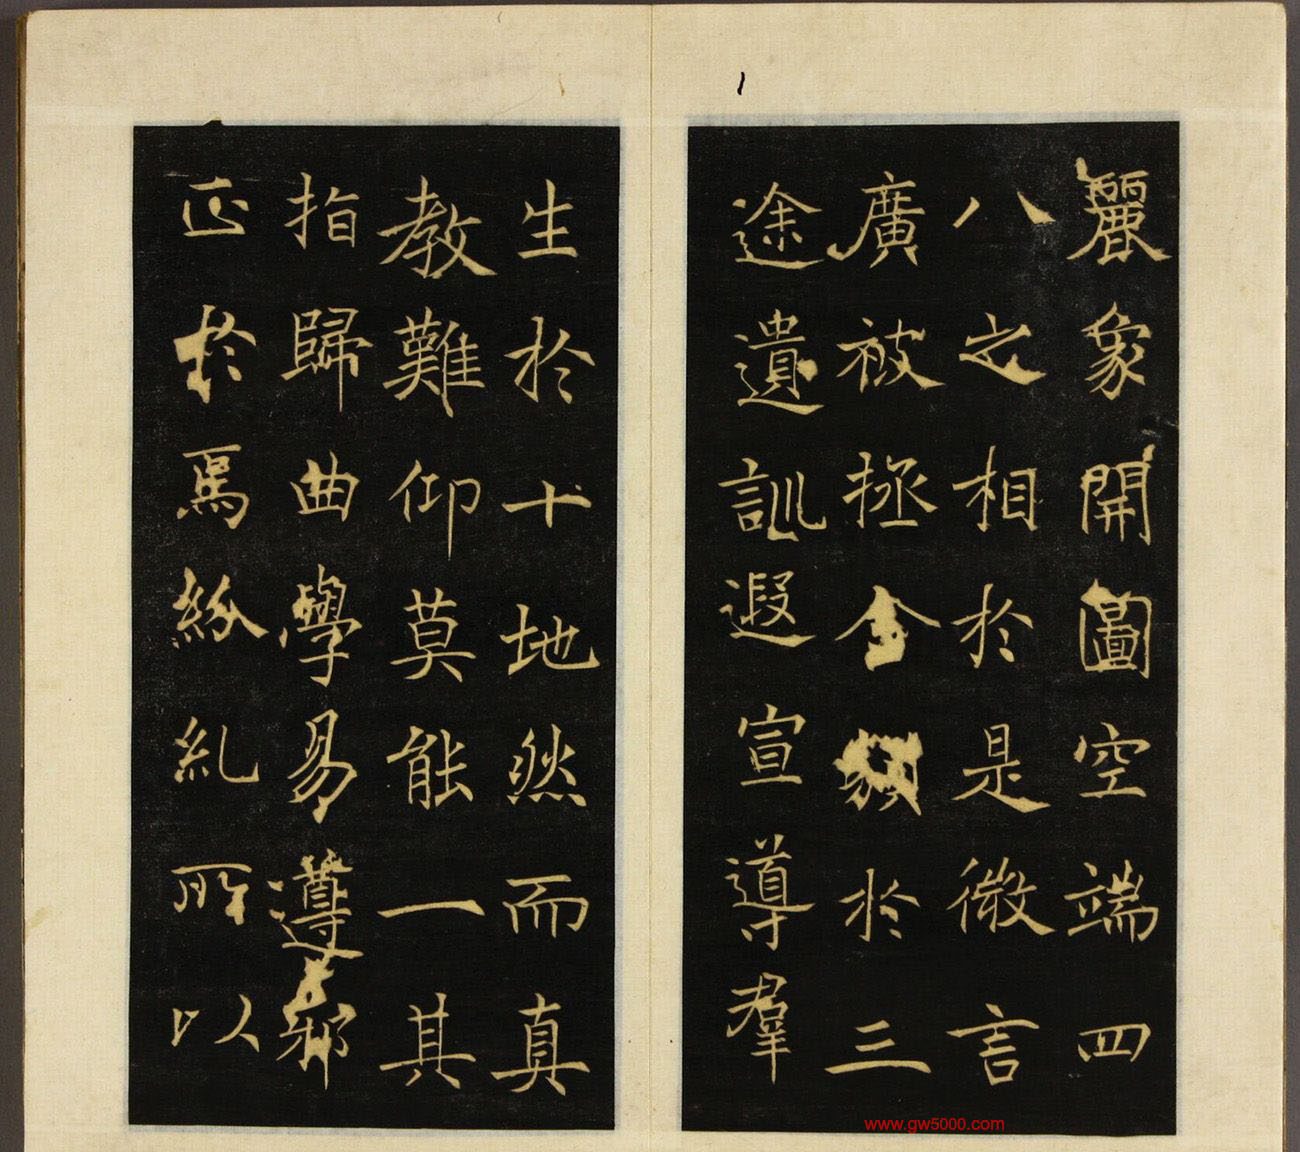 麗象開圖空端四
八之相於是微言
廣被拯含類於三
途遺訓遐宣導群
生於十地然而真
教難仰莫能一其
指歸曲學易遵邪
正於焉紛糺所以
www.gw5000.com